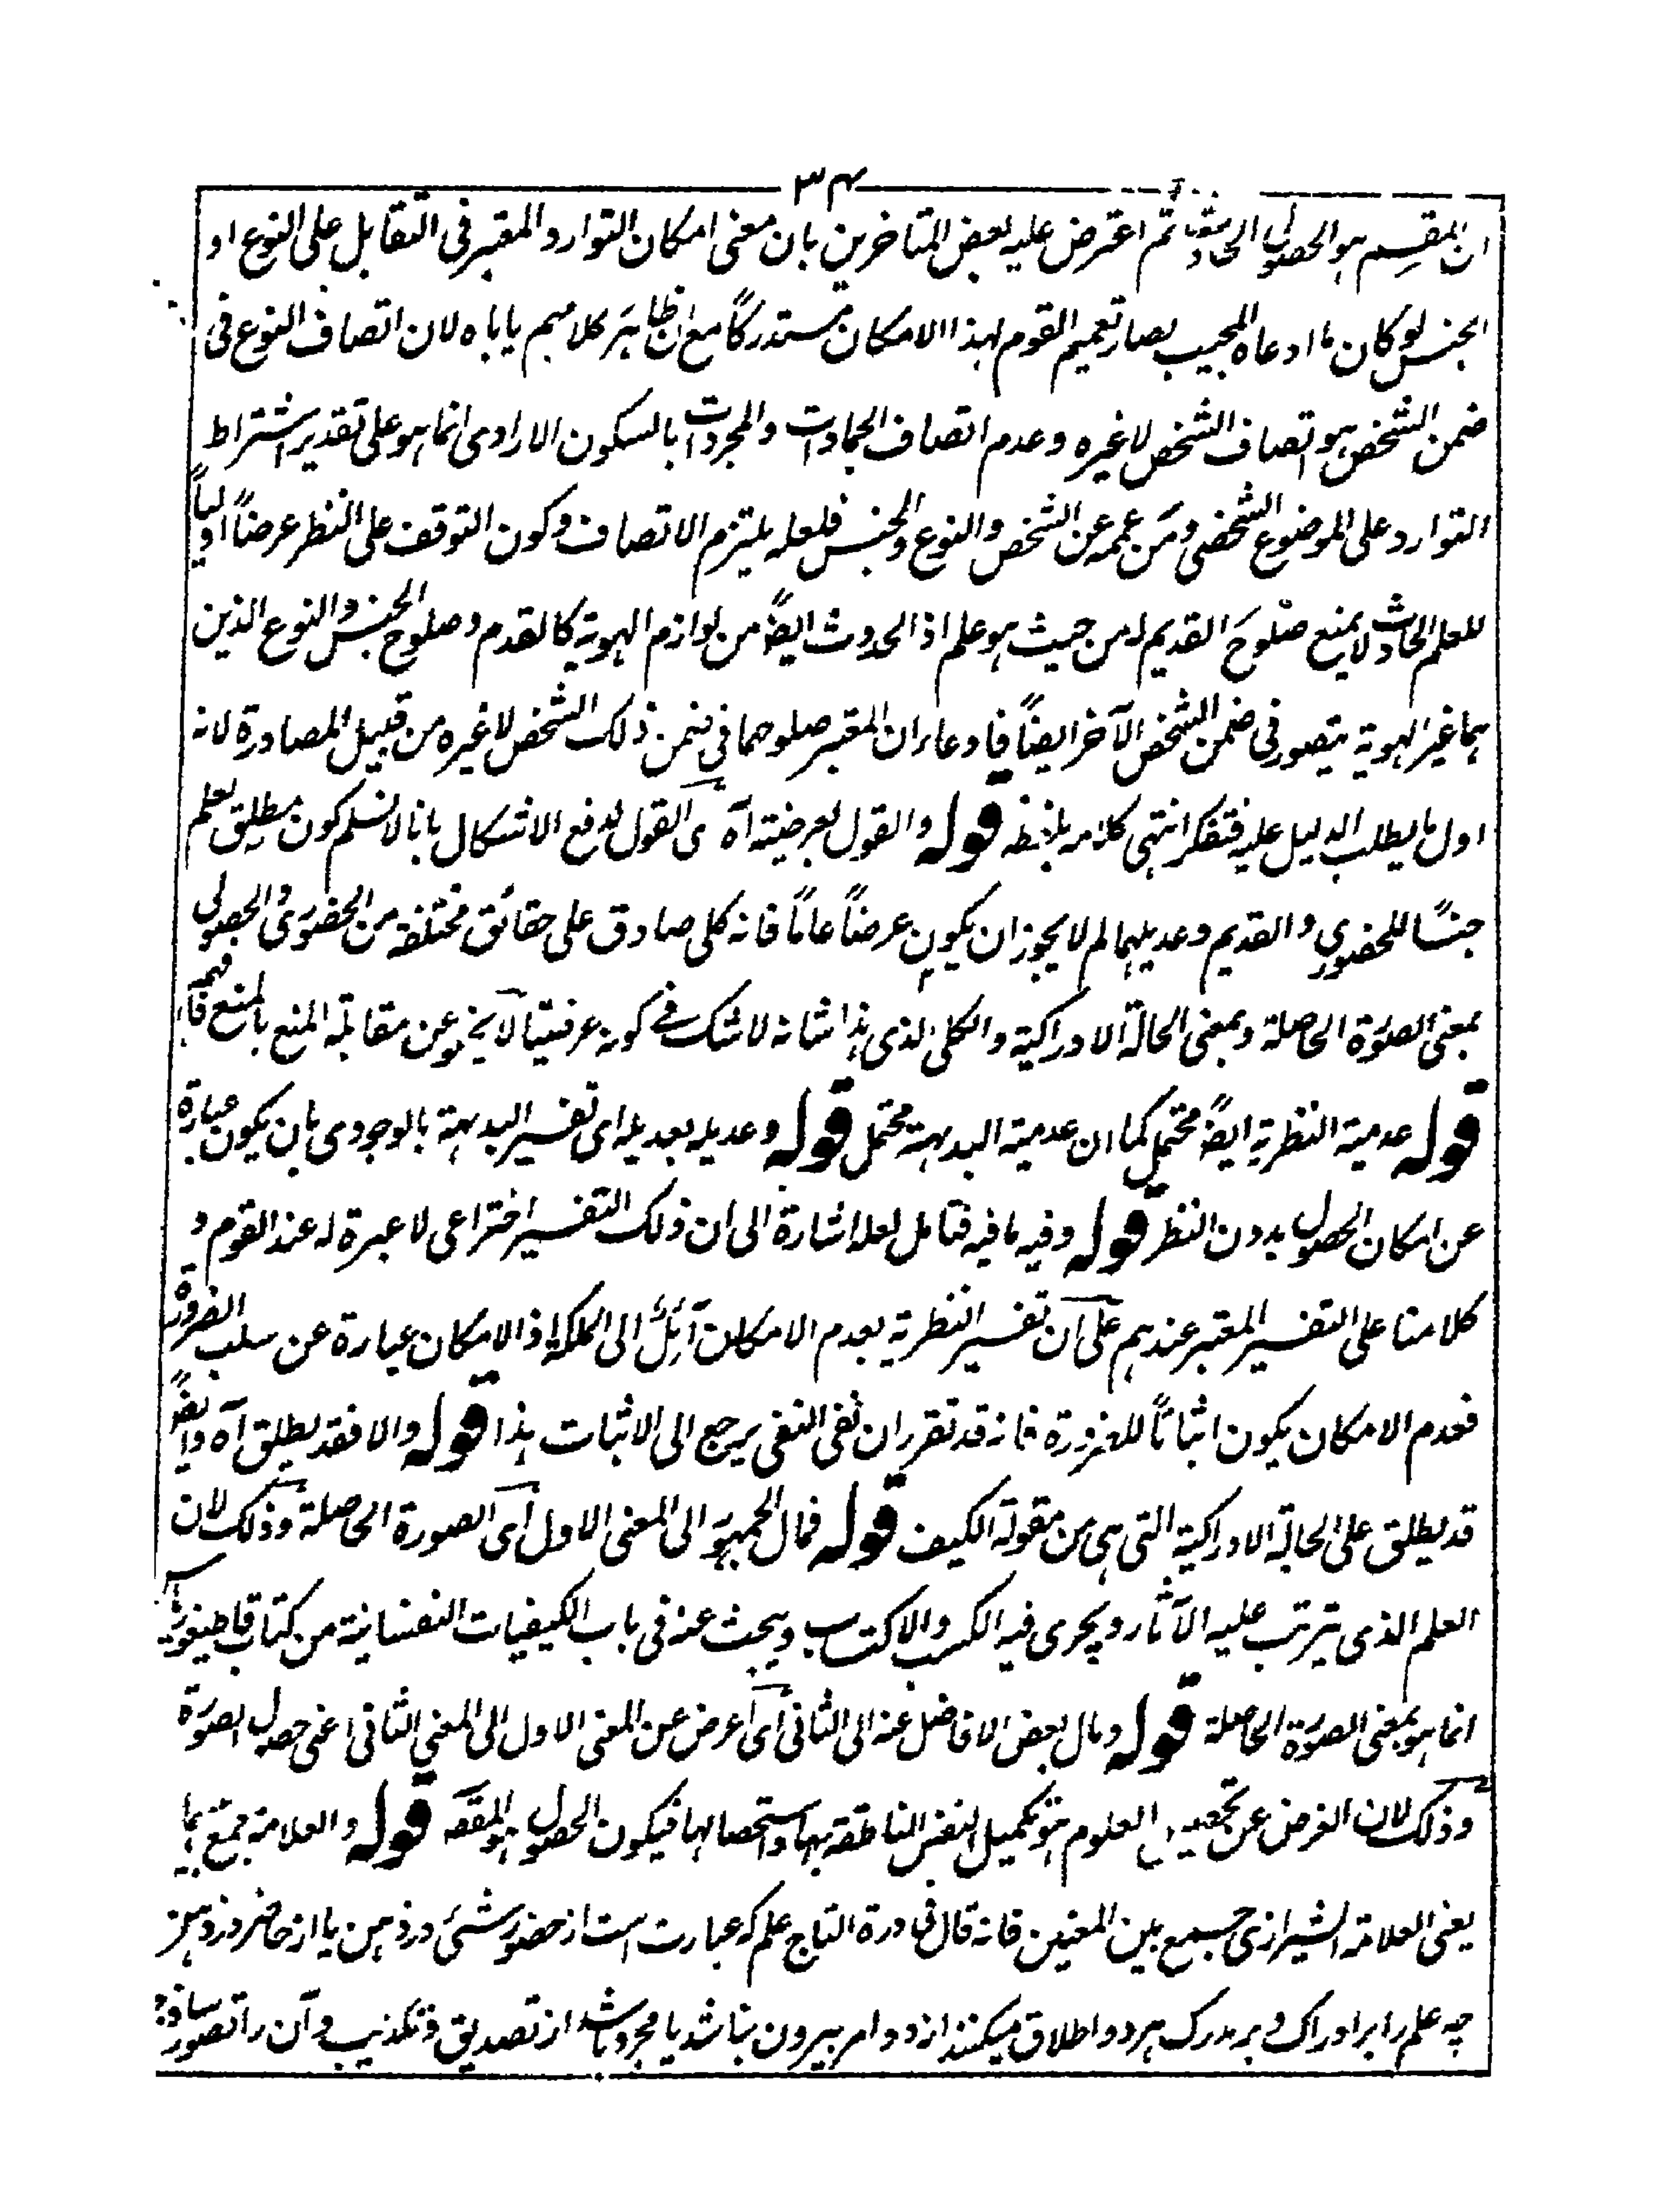 ٣٤
ان المقسم هو الحصولى الحادث ثم اعترض عليه بعض المتاخرين بان معنى امكان التوارد المعتبر فى التقابل على النوع او
الجنس لو كان ما ادعاه المجيب لصار تعميم القوم لهذا الامكان مستدركاً مع ان ظاهر كلامهم ياباه لان اتصاف النوع فى
ضمن الشخص هو اتصاف الشخص لا غيره وعدم اتصاف الجمادات والمجردات بالسكون الارادى انما هو على تقدير اشتراط
التوارد على الموضوع الشخصى ومن عممه عن الشخص والنوع والجنس فلعله يلتزم الاتصاف وكون التوقف على النظر عرضاً اولياً
للعلم الحادث لا يمنع صلوح القديم له من حيث هو علم اذ الحدوث ايضاً من لوازم الهوية كالقدم وصلوح الجنس والنوع الذين
هما غير الهوية يتصور فى ضمن الشخص الآخر ايضاً فادعاء ان المعتبر صلوحهما فى ضمن ذلك الشخص لا غيره من قبيل المصادرة لانه
اول ما يطلب الدليل عليه فتفكر انتهى كلامه بلفظه قوله والقول بعرضيته آه اى القول لدفع الاشكال بانا لا نسلم كون مطلق العلم
جنسًا للحضورى والقديم وعديلهما لم لا يجوز ان يكون عرضاً عاماً فانه كلى صادق على حقائق مختلفة من الحضورى والحصولى
بمعنى الصورة الحاصلة وبمعنى الحالة الادراكية والكلى الذى هذا شانه لا شك فى كونه عرضيا لا يخلو عن مقابلة المنع بالمنع فافهم
قوله عدمية النظرية ايضاً محتمل كما ان عدمية البديهة محتمل قوله وعديله بعديله اى تفسير البديهة بالوجودى بان يكون عبارة
عن امكان الحصول بدون النظر قوله وفيه ما فيه فتامل لعله اشارة الى ان ذلك التفسير اختراعى لا عبرة له عند القوم و
كلامنا على التفسير المعتبر عندهم على ان تفسير النظرية بعدم الامكان آئل الى الملكة اذ الامكان عبارة عن سلب الضرورة
فعدم الامكان يكون اثباتاً للضرورة فانه قد تقرر ان نفى النفى يرجع الى الاثبات هذا قوله والا فقد يطلق آه وايضاً
قد يطلق على الحالة الادراكية التى هى من مقولة الكيف قوله فمال الجمهور الى المعنى الاول اى الصورة الحاصلة وذلك لان
العلم الذى يترتب عليه الآثار ويجرى فيه الكسب والاكتساب ويبحث عنه فى باب الكيفيات النفسانية من كتاب قاطيغورياس
انما هو بمعنى الصورة الحاصلة قوله ومال بعض الافاضل عنه الى الثانى اى اعرض عن المعنى الاول الى المعنى الثانى اعنى حصول الصورة
وذلك لان الغرض عن تحصيل العلوم هو تكميل النفس الناطقة بها واستحصالها فيكون الحصول هو المقصود قوله والعلامة جمع بينهما
يعنى العلامة الشيرازى جمع بين المعنيين فانه قال فى درة التاج علم كه عبارت است از حضور شئ در ذهن يا از حاضر در ذهن
چه علم را بر ادراك و بر مدرك هر دو اطلاق ميكنند از دو امر بيرون نباشد يا مجرد باشد از تصديق و تكذيب و آن را تصور ساذج